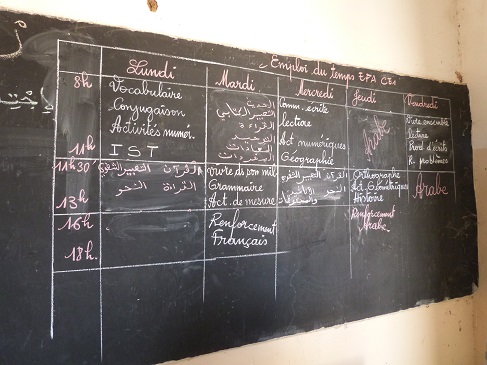 Emploi du temps EFA CE1
Lundi
Mardi
Mercredi
Jeudi
Vendredi
8h
11h
Vocabulaire
Conjugaison
Activités numér.
IST
القراءة
Comm. écrite
lecture
Act numériques
Géographie
Arabe
Vivre ensemble
lecture
Prod d'écrits
R. problèmes
11h30'
13h
القرآن التعبير الشفوي
القراءة النحو
Vivre ds son mil
Grammaire
Act. de mesure
القرآن التعبير
النحو
Orthographe
Act. Géométriques
Histoire
Arabe
16h
18h.
Renforcement
Français
Renforcement
Arabe